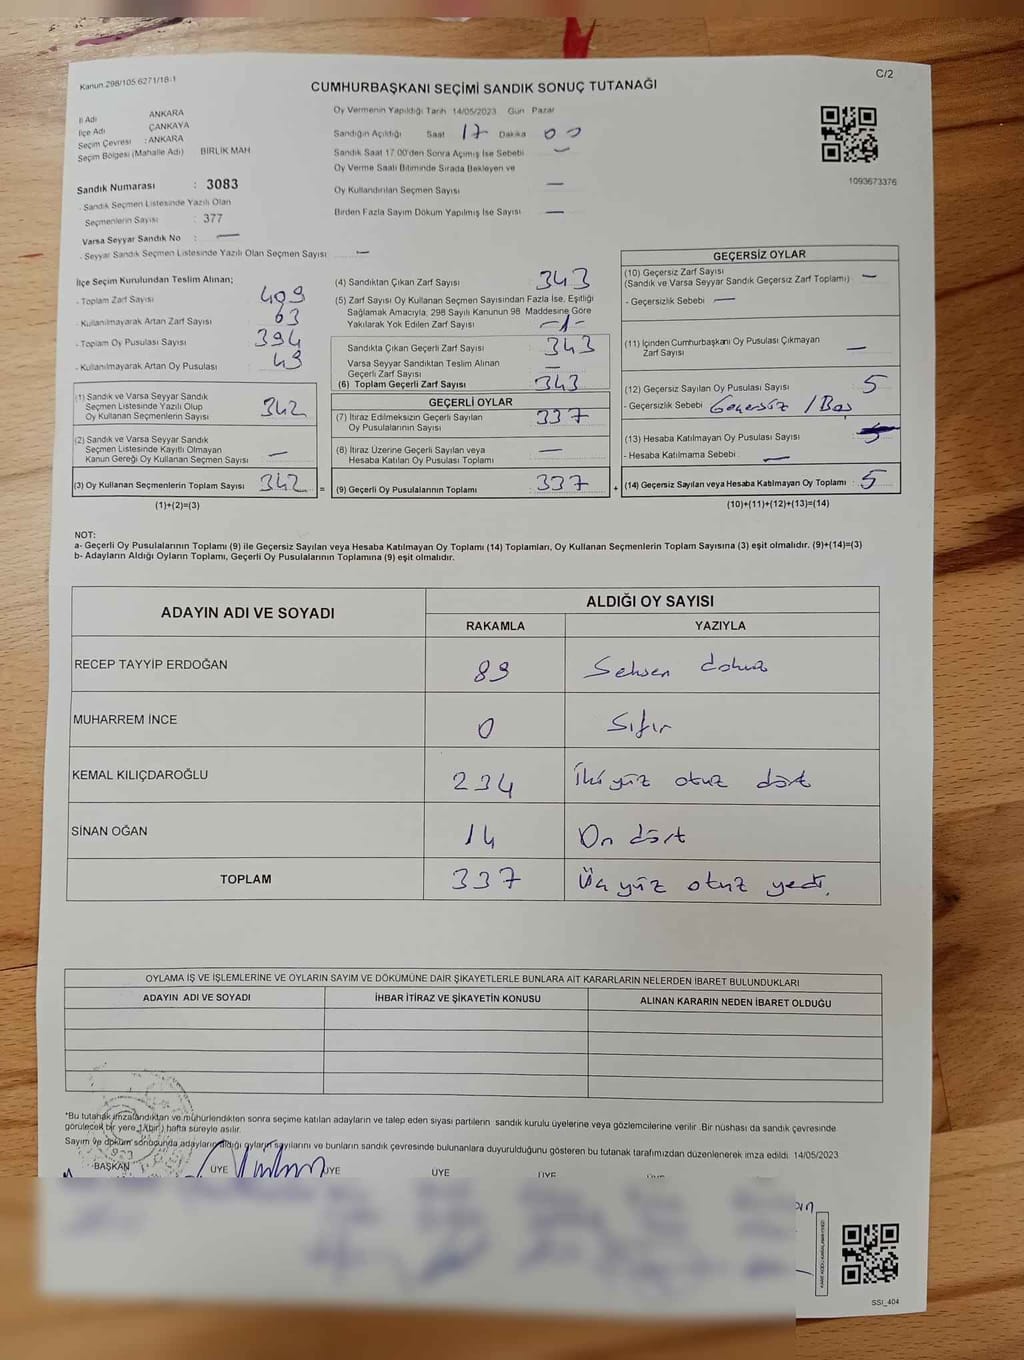 Kanun 298/105 6271/18-1
C/2
CUMHURBAŞKANI SEÇİMİ SANDIK SONUÇ TUTANAĞI
İl Adı ANKARA
İlçe Adı ÇANKAYA
Seçim Çevresi : ANKARA
Seçim Bölgesi (Mahalle Adı) BİRLİK MAH
Oy Vermenin Yapıldığı Tarih 14/05/2023 Gün Pazar
Sandığın Açıldığı Saat 17 Dakika 00
Sandık Saat 17:00'den Sonra Açımış İse Sebebi —
Oy Verme Saati Bitiminde Sırada Bekleyen ve
Oy Kullandırılan Seçmen Sayısı —
Birden Fazla Sayım Döküm Yapılmış İse Sayısı —
1093673376
Sandık Numarası : 3083
- Sandık Seçmen Listesinde Yazılı Olan
Seçmenlerin Sayısı : 377
Varsa Seyyar Sandık No : —
- Seyyar Sandık Seçmen Listesinde Yazılı Olan Seçmen Sayısı —
İlçe Seçim Kurulundan Teslim Alınan;
- Toplam Zarf Sayısı 409
- Kullanılmayarak Artan Zarf Sayısı 63
- Toplam Oy Pusulası Sayısı 394
- Kullanılmayarak Artan Oy Pusulası 49
(1) Sandık ve Varsa Seyyar Sandık
Seçmen Listesinde Yazılı Olup
Oy Kullanan Seçmenlerin Sayısı 342
(2) Sandık ve Varsa Seyyar Sandık
Seçmen Listesinde Kayıtlı Olmayan
Kanun Gereği Oy Kullanan Seçmen Sayısı —
(3) Oy Kullanan Seçmenlerin Toplam Sayısı 342 =
(1)+(2)=(3)
(4) Sandıktan Çıkan Zarf Sayısı 343
(5) Zarf Sayısı Oy Kullanan Seçmen Sayısından Fazla İse, Eşitliği
Sağlamak Amacıyla, 298 Sayılı Kanunun 98 Maddesine Göre
Yakılarak Yok Edilen Zarf Sayısı -1-
Sandıkta Çıkan Geçerli Zarf Sayısı 343
Varsa Seyyar Sandıktan Teslim Alınan
Geçerli Zarf Sayısı —
(6) Toplam Geçerli Zarf Sayısı 343
GEÇERLİ OYLAR
(7) İtiraz Edilmeksizin Geçerli Sayılan
Oy Pusulalarının Sayısı 337
(8) İtiraz Üzerine Geçerli Sayılan veya
Hesaba Katılan Oy Pusulası Toplamı —
(9) Geçerli Oy Pusulalarının Toplamı 337 +
GEÇERSİZ OYLAR
(10) Geçersiz Zarf Sayısı
(Sandık ve Varsa Seyyar Sandık Geçersiz Zarf Toplamı) —
- Geçersizlik Sebebi —
(11) İçinden Cumhurbaşkanı Oy Pusulası Çıkmayan
Zarf Sayısı —
(12) Geçersiz Sayılan Oy Pusulası Sayısı 5
- Geçersizlik Sebebi Geçersiz / Boş
(13) Hesaba Katılmayan Oy Pusulası Sayısı
- Hesaba Katılmama Sebebi : —
(14) Geçersiz Sayılan veya Hesaba Katılmayan Oy Toplamı : 5
(10)+(11)+(12)+(13)=(14)
NOT:
a- Geçerli Oy Pusulalarının Toplamı (9) ile Geçersiz Sayılan veya Hesaba Katılmayan Oy Toplamı (14) Toplamları, Oy Kullanan Seçmenlerin Toplam Sayısına (3) eşit olmalıdır. (9)+(14)=(3)
b- Adayların Aldığı Oyların Toplamı, Geçerli Oy Pusulalarının Toplamına (9) eşit olmalıdır.
ADAYIN ADI VE SOYADI
ALDIĞI OY SAYISI
RAKAMLA YAZIYLA
RECEP TAYYİP ERDOĞAN 89 Seksen dokuz
MUHARREM İNCE 0 Sıfır
KEMAL KILIÇDAROĞLU 234 İki yüz otuz dört
SİNAN OĞAN 14 On dört
TOPLAM 337 Üç yüz otuz yedi.
OYLAMA İŞ VE İŞLEMLERİNE VE OYLARIN SAYIM VE DÖKÜMÜNE DAİR ŞİKAYETLERLE BUNLARA AİT KARARLARIN NELERDEN İBARET BULUNDUKLARI
ADAYIN ADI VE SOYADI İHBAR İTİRAZ VE ŞİKAYETİN KONUSU ALINAN KARARIN NEDEN İBARET OLDUĞU
*Bu tutanak imzalandıktan ve mühürlendikten sonra seçime katılan adayların ve talep eden siyasi partilerin sandık kurulu üyelerine veya gözlemcilerine verilir. Bir nüshası da sandık çevresinde
görülecek bir yere 1(bir) hafta süreyle asılır.
Sayım ve döküm sonucunda adayların aldığı oyların sayılarını ve bunların sandık çevresinde bulunanlara duyurulduğunu gösteren bu tutanak tarafımızdan düzenlenerek imza edildi. 14/05/2023
BAŞKAN ÜYE ÜYE ÜYE ÜYE
SSI_404